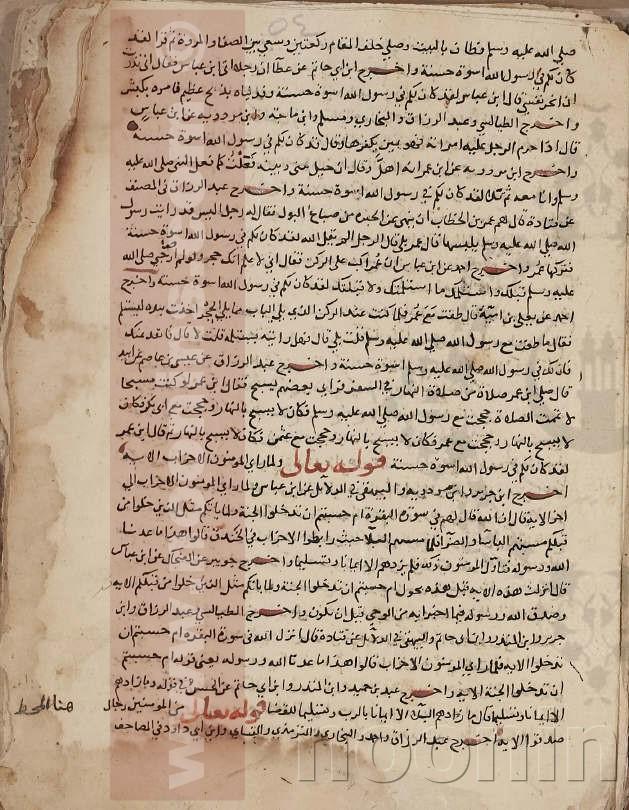 صلى الله عليه وسلم فطاف بالبيت وصلى خلف المقام ركعتين وسعى بين الصفا والمروة ثم قرأ لقد
كان لكم في رسول الله اسوة حسنة واخرج ابن ابي حاتم عن عطا ان رجلا اتى ابن عباس فقال اني نذرت
ان انحر نفسي فقال ابن عباس لقد كان لكم في رسول الله اسوة حسنة وفديناه بذبح عظيم فامره بكبش
واخرج الطيالسي وعبد الرزاق والبخاري ومسلم وابن ماجه وابن مردويه عن ابن عباس
قال اذا حرم الرجل عليه امراته فهو يمين يكفرها وقال لقد كان لكم في رسول الله اسوة حسنة
واخرج ابن مردويه عن ابن عمر انه اهل وقال ان حيل بيني وبينه فعلت كما فعل النبي صلى الله عليه
وسلم وانا معه ثم تلا لقد كان لكم في رسول الله اسوة حسنة واخرج عبد الرزاق في المصنف
عن قتادة قال هم عمر بن الخطاب ان ينهى عن الحبرة من صباغ البول فقال له رجل اليس قد رايت رسول
الله صلى الله عليه وسلم يلبسها قال عمر بلى قال الرجل الم يقل الله لقد كان لكم في رسول الله اسوة حسنة
فتركها عمر واخرج احمد عن ابن عباس ان عمر اكب على الركن فقال اني لاعلم انك حجر ولو لم ار حبي صلى الله
عليه وسلم قبلك واستلمك ما استلمتك ولا قبلتك لقد كان لكم في رسول الله اسوة حسنة واخرج
احمد عن يعلى بن امية قال طفت مع عمر فلما كنت عند الركن الذي يلي الباب مما يلي الحجر اخذت بيده ليستلم
فقال ما طفت مع رسول الله صلى الله عليه وسلم قلت بلى قال فهل رايته يستلمه قلت لا قال فابعد عنك
فان لك في رسول الله صلى الله عليه وسلم اسوة حسنة واخرج عبد الرزاق عن عيسى بن عاصم عن ابيه
قال صلى ابن عمر صلاة من صلاة النهار في السفر فراى بعضهم يسبح فقال ابن عمر لو كنت مسبحا
لاتممت الصلاة حججت مع رسول الله صلى الله عليه وسلم فكان لا يسبح بالنهار وحججت مع ابي بكر فكان
لا يسبح بالنهار وحججت مع عمر فكان لا يسبح بالنهار وحججت مع عثمن فكان لا يسبح بالنهار ثم قال ابن عمر
لقد كان لكم في رسول الله اسوة حسنة قوله تعالى ولما راى المومنون الاحزاب الايه
اخرج ابن جرير وابن مردويه والبيهقي في الدلايل عن ابن عباس ولما راى المومنون الاحزاب الى
اخر الاية قال ان الله قال لهم في سورة البقرة ام حسبتم ان تدخلوا الجنة ولما ياتكم مثل الذين خلوا من
قبلكم مستهم الباسا والضرا فلما مسهم البلا حيث رابطوا الاحزاب في الخندق قالوا هذا ما وعدنا
الله ورسوله فتاول المومنون ذلك فلم يزدهم الا ايمانا وتسليما واخرج جويبر عن الضحاك عن ابن عباس
قال انزلت هذه الايه قبل هذه بحول ام حسبتم ان تدخلوا الجنة ولما ياتكم مثل الذين خلوا من قبلكم الايه
وصدق الله ورسوله فيما اخبرا به من الوحي قبل ان يكون واخرج الطيالسي وعبد الرزاق وابن
جرير وابن المنذر وابن ابي حاتم والبيهقي في الدلايل عن قتادة قال انزل الله في سورة البقرة ام حسبتم ان
تدخلوا الايه فلما راى المومنون الاحزاب قالوا هذا ما وعدنا الله ورسوله يعني قوله ام حسبتم
ان تدخلوا الجنة الايه واخرج عبد بن حميد وابن المنذر وابن ابي حاتم عن الحسن في قوله وما زادهم
الا ايمانا وتسليما قال ما زادهم البلا الا ايمانا بالرب وتسليما للقضا قوله تعالى من المومنين رجال
صدقوا الايه اخرج عبد الرزاق واحمد والبخاري والترمذي والنساي وابن ابي داود في المصاحف
noormin